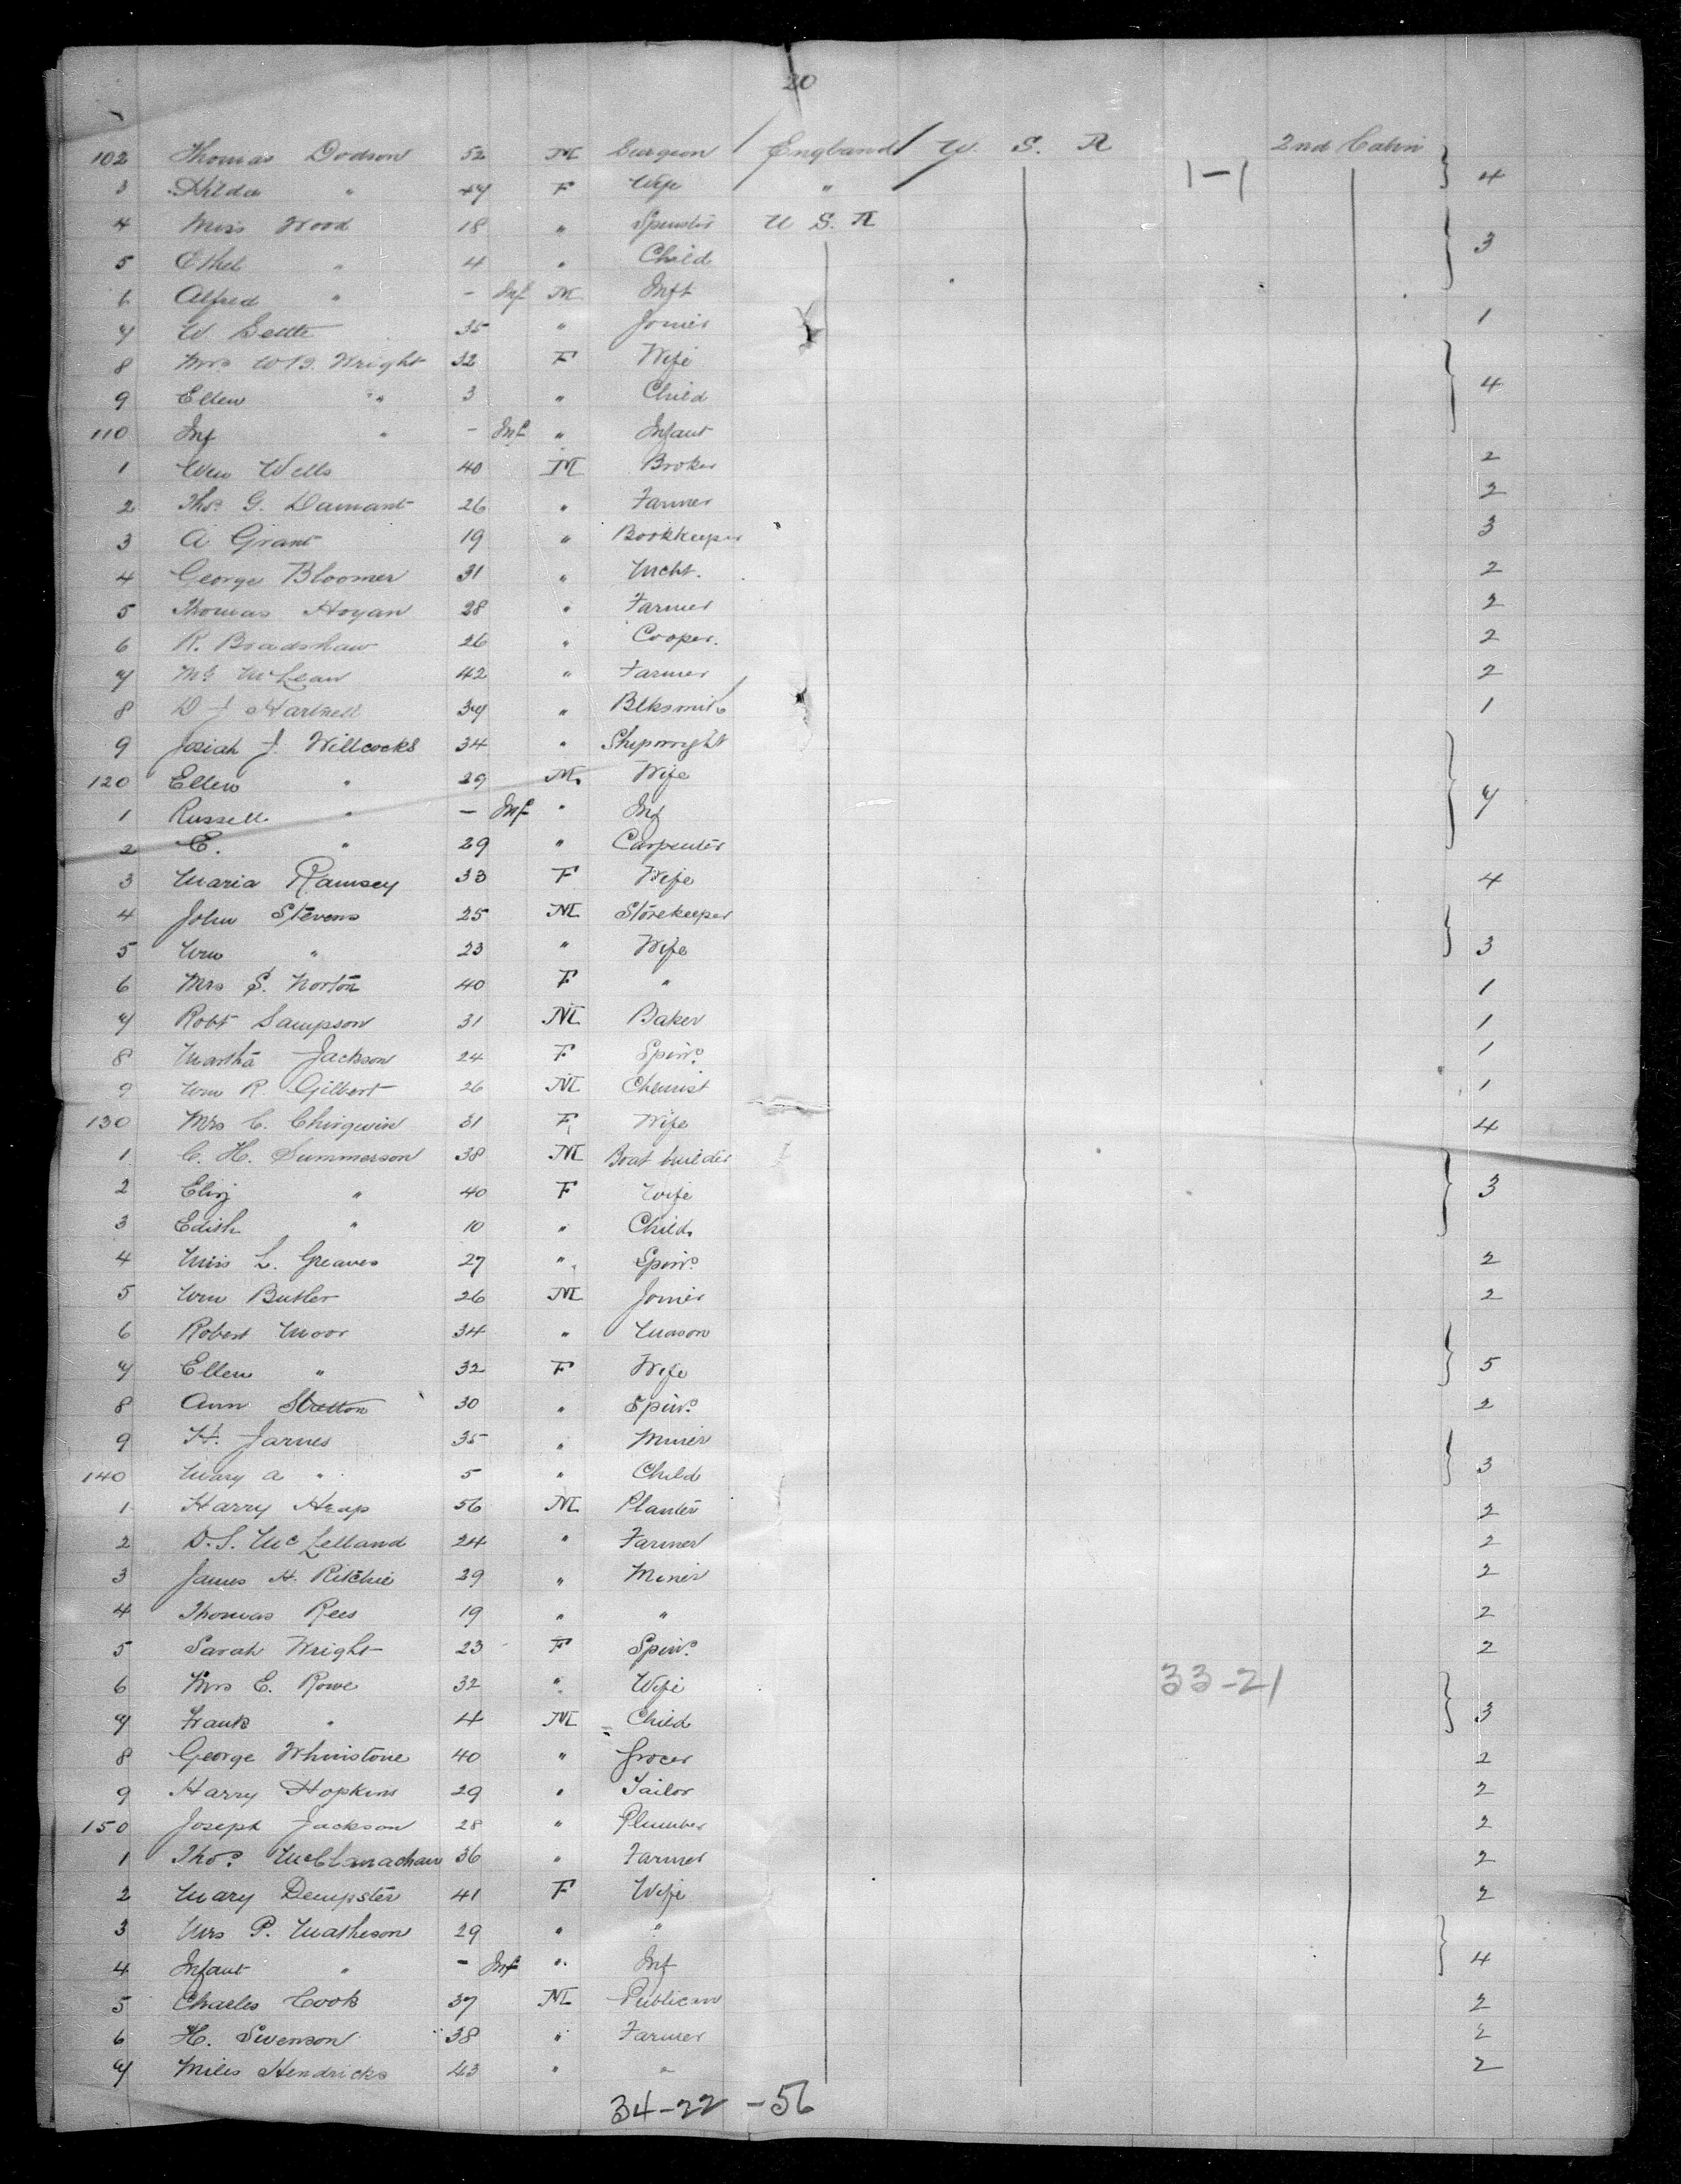 20
102 Thomas Dodson 52 M Surgeon England U. S. A 2nd Cabin
3 Hilda " 47 F Wife " 1-1 4
4 Miss Wood 18 " Spinster U S. A
5 Ethel " 4 " Child 3
6 Alfred " - Inf M Inft
7 W. 35 " Joiner 1
8 Mrs W B. Wright 32 F Wife
9 Ellen " 3 " Child 4
110 Inf " - Inf " Infant
1 Wm Wells 40 M Broker 2
2 Thos G. Damant 26 " Farmer 2
3 A Grant 19 " Bookkeeper 3
4 George Bloomer 31 " Mcht. 2
5 Thomas Hogan 28 " Farmer 2
6 R. Bradshaw 26 " Cooper. 2
7 Mr McLean 42 " Farmer 2
8 D J Hartnell 37 " Blksmith 1
9 Josiah J. Willcocks 34 " Shipwright
120 Ellen " 29 M Wife 7
1 Russell " - Inf " Inf
2 E. " 29 " Carpenter
3 Maria Ramsey 33 F Wife 4
4 John Stevens 25 M Storekeeper
5 Wm " 23 " Wife 3
6 Mrs S. Norton 40 F " 1
7 Robt Sampson 31 M Baker 1
8 Martha Jackson 24 F Spinr 1
9 Wm R. Gilbert 26 M Chemist 1
130 Mrs C. Chirgwin 31 F Wife 4
1 C. H. Summerson 38 M Boat builder
2 Eliz " 40 F Wife 3
3 Edith " 10 " Child
4 Miss L. Greaves 27 " Spinr 2
5 Wm Butler 26 M Joiner 2
6 Robert Moor 34 " Mason
7 Ellen " 32 F Wife 5
8 Ann Stretton 30 " Spinr 2
9 H. James 35 " Miner
140 Mary A " 5 " Child 3
1 Harry Heap 56 M Planter 2
2 D. S. McLelland 24 " Farmer 2
3 James H. Ritchie 29 " Miner 2
4 Thomas Rees 19 " " 2
5 Sarah Wright 23 F Spinr 2
6 Mrs E. Rowe 32 " Wife 33-21
7 Frank " 4 M Child 3
8 George Whinstone 40 " Grocer 2
9 Harry Hopkins 29 " Tailor 2
150 Joseph Jackson 28 " Plumber 2
1 Thos McClanachan 36 " Farmer 2
2 Mary Dempster 41 F Wife 2
3 Mrs P. Matheson 29 " "
4 Infant " - Inf " Inf 4
5 Charles Cook 37 M Publican 2
6 H. Swenson 38 " Farmer 2
7 Miles Hendricks 43 " " 2
34-22-56